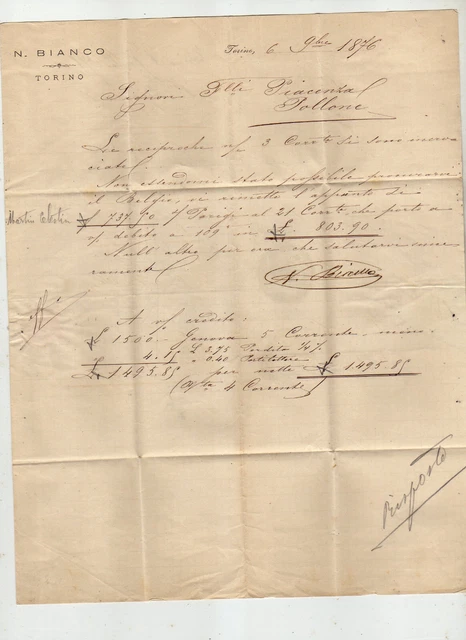 N. BIANCO
TORINO
Torino, 6 9bre 1876
Signori Flli Piacenza
Pollone
Le 3 Corrte si sono
Non essendomi stato possibile procurarmi
il Belgio, vi rimetto l'appunto di
Martin
£ 737.90 s/ Parigi al 21 Corrte che porto a
v/ debito a 109 in £ 803.90.
Null'altro per ora che salutarvi since
ramente
N. Bianco
A v/ credito:
£ 1500.- Genova 5 Corrente meno
4.15 £ 3.75 Perdita 1/4 %
" 0.40
£ 1495.85 per netto £ 1495.85
4 Corrente)
Risposto